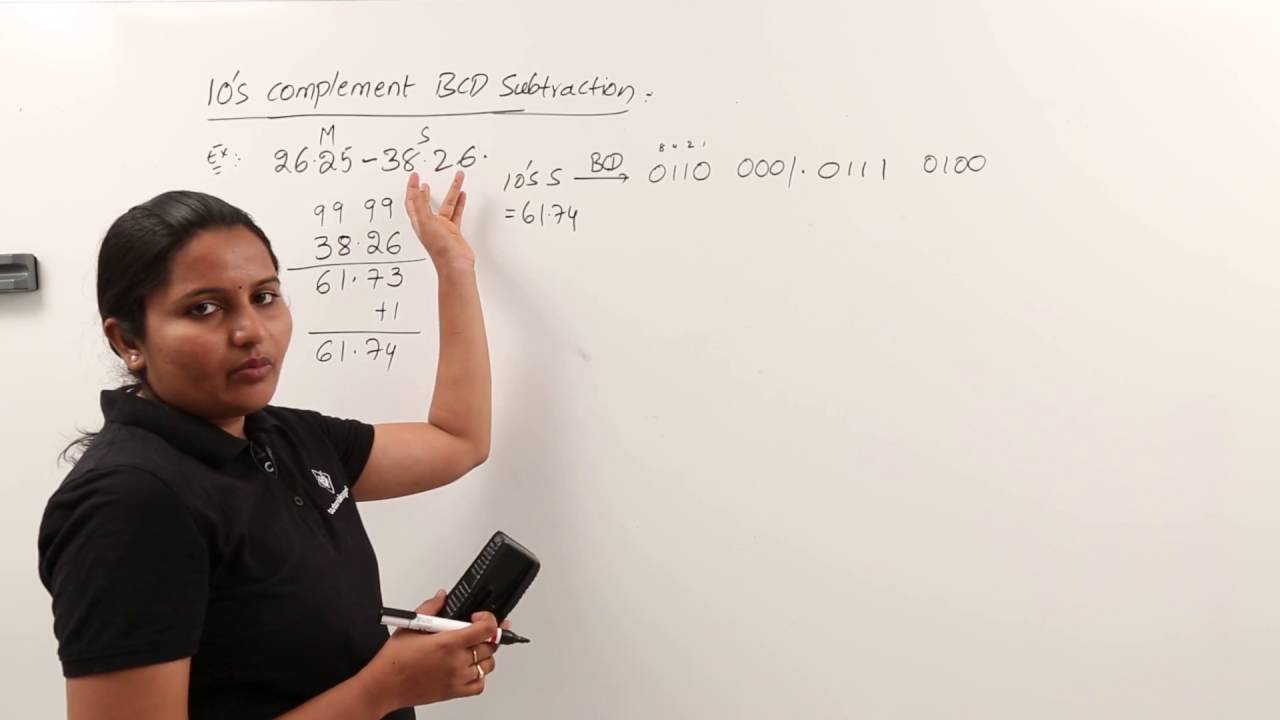 10's complement BCD Subtraction.
M S
Ex: 26.25 - 38.26.
99 99
38.26
61.73
+1
61.74
8 4 2 1
10's S BCD → 0110 0001. 0111 0100
= 61.74